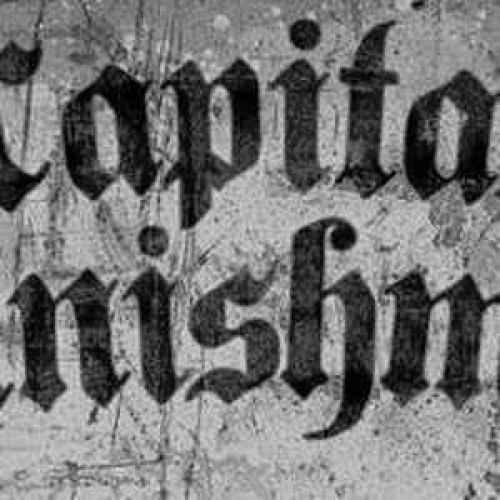 Capita
unishm